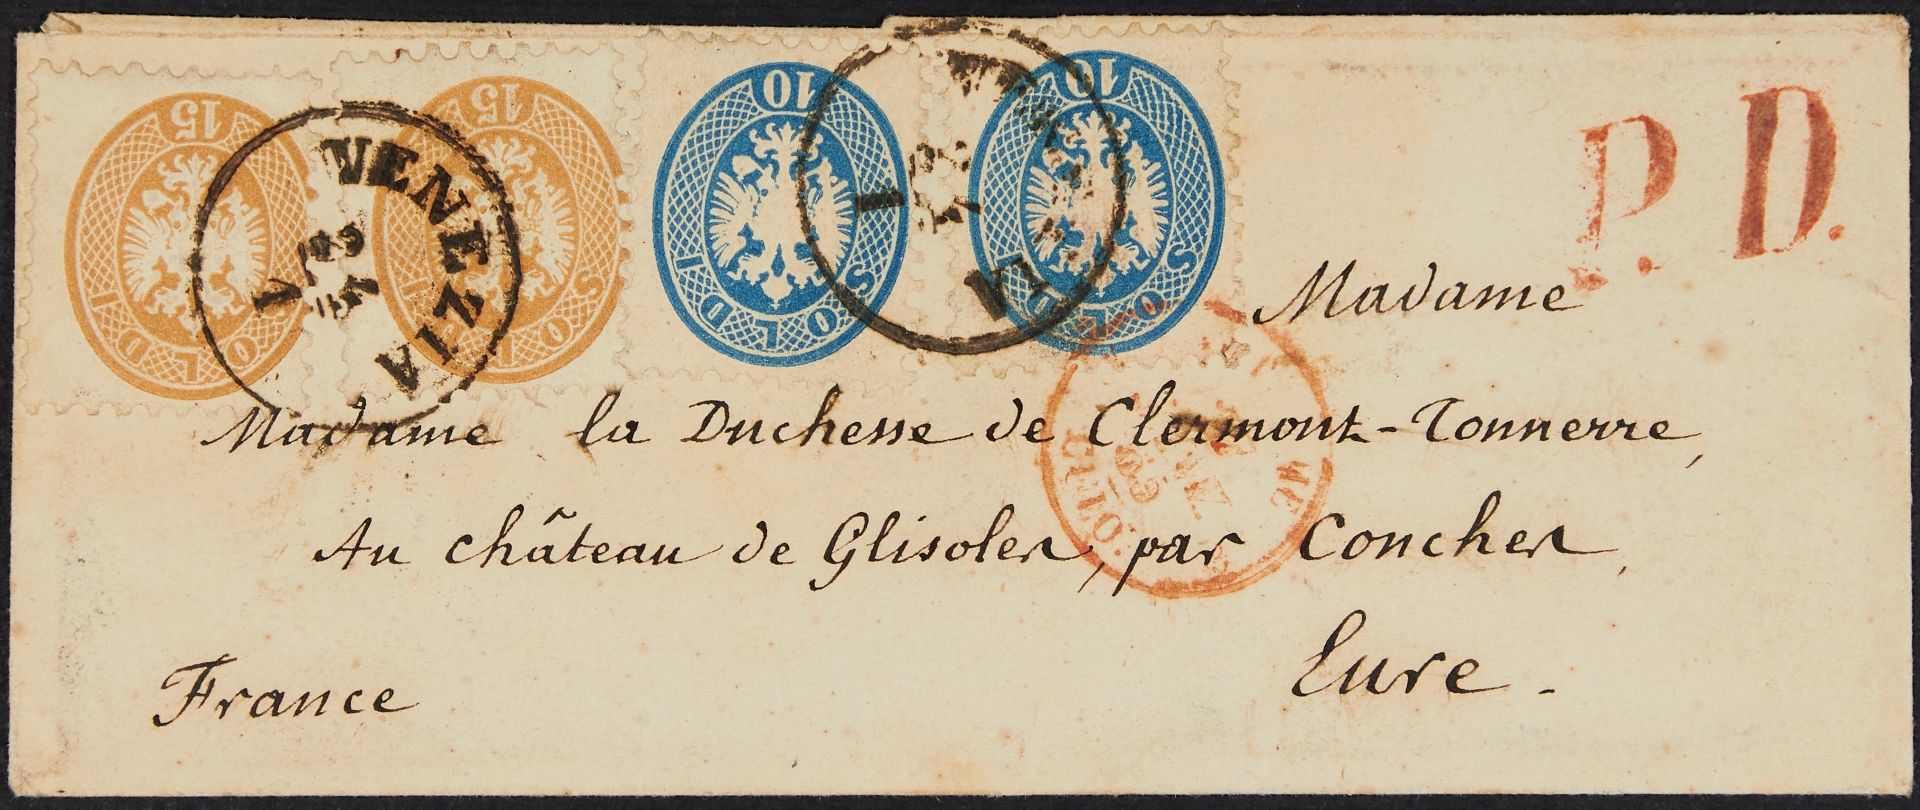 15
15
10
10
SOLDI
SOLDI
SOLDI
SOLDI
VENEZIA
P.D.
Madame
Madame la Duchesse de Clermont-Tonnerre,
Au château de Glisolles, par Conches,
Eure.
France